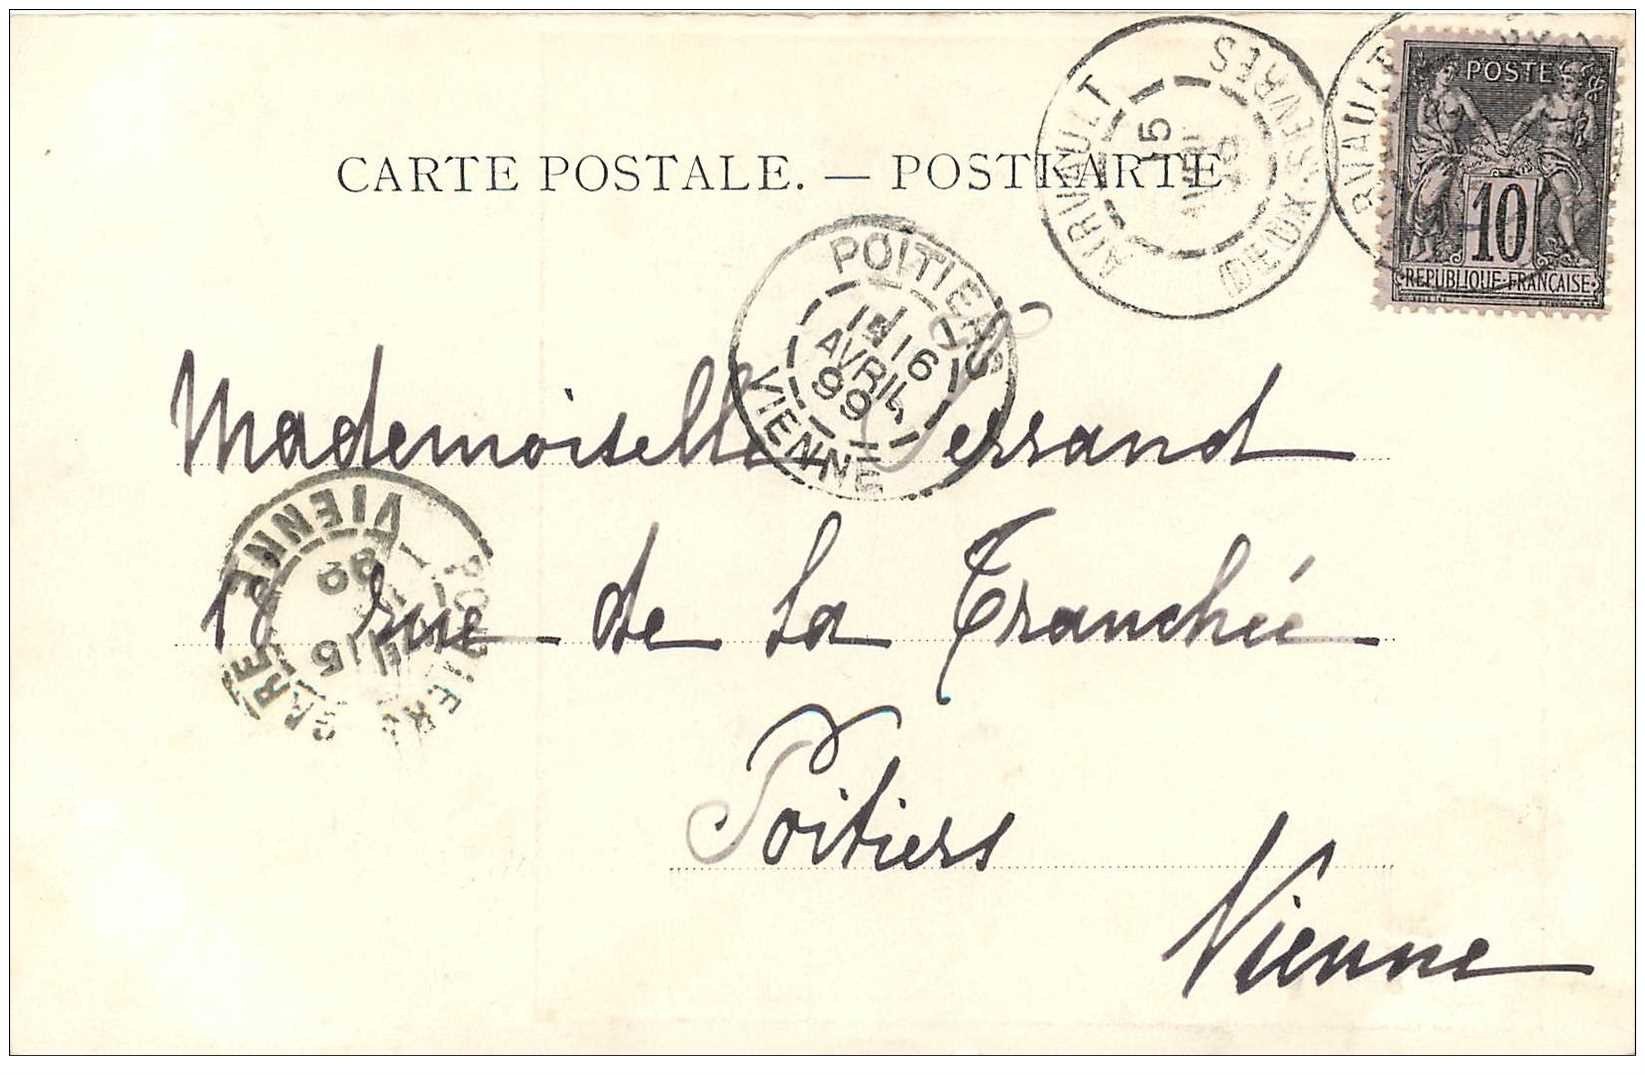 CARTE POSTALE. — POSTKARTE
AIRVAULT
15
AVRIL
99
(DEUX-SÈVRES
POSTE
10
REPUBLIQUE FRANÇAISE
POITIERS
16
AVRIL
99
VIENNE
Mademoiselle Serrand
VIENNE
99
15
GARE
rue de La Tranchée
Poitiers
Vienne